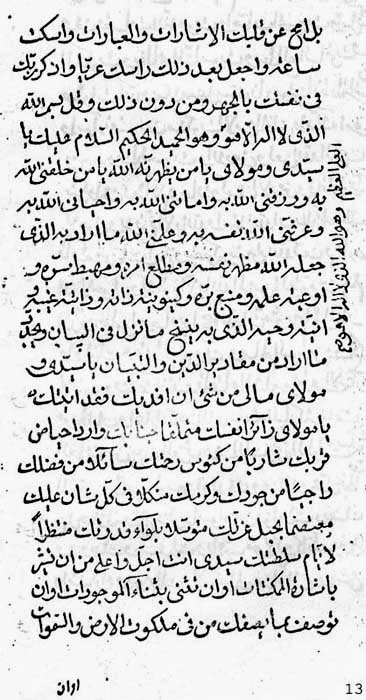 بل امح عن قلبك الاشارات والعبارات واسكت
ساعة واجعل بعد ذلك راسك عريّا واذكر ربّك
فى نفسك بالجهر ومن دون ذلك وقل بسم الله
الذى لا اله الّا هو وهو الحميد الحكيم السّلام عليك يا
سيّدى ومولائى يا من يظهرنّه الله يا من خلقنى الله
به ورزقنى الله به واماتنى الله به واحيانى الله به
وعرّفنى الله نفسه به وعلّمنى الله ما اراد به الذى
جعله الله مظهر نفسه ومطلع امره ومهبط سرّه و
اوعية علمه ومنبع برّه وكينونية ذاته وذاتية غيبه و
انيّة وحيه الذى به ينسخ ما نزل فى البيان ويجدّد
ما اراد من مقادير الدّين والتبيان يا سيّدى و
مولاى مالى من شئ ان افديك فقد اتيتك
يا مولاى زائرا نفسك متملّقا جنابك واردا حياض
قربك شاربا من كئوس رحمتك سائلا من فضلك
راجيا من جودك وكرمك متكلا فى كلّ شان عليك
معتصما بحبل عزّتك متوسلا بلواء قدرتك منتظراً
لايام سلطنتك سيدى انت اجلّ واعلى من ان تشر
باشارة الممكنات او ان تثنى بثناء الموجودات او ان
توصف بما يصفك من فى ملكوت الارض والسّموات
العلىّ العظيم وهو الله الذى لا اله الّا هو
او ان
13